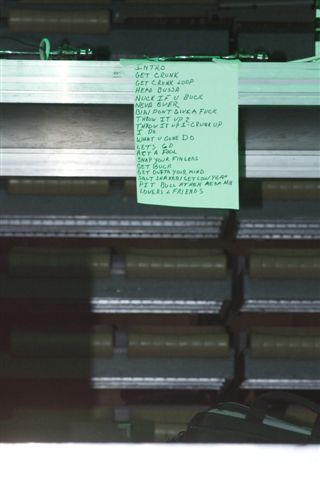 INTRO
GET CRUNK
GET CRUNK LOOP
HEAD BUSSA
NUCK IF U BUCK
NEVA EVER
BIA/ DON'T GIVE A FUCK
THROW IT UP 2
THROW IT UP I-CRUNK UP
I DO
WHAT U GONE DO
LET'S GO
ACT A FOOL
SNAP YOUR FINGERS
GET BUCK
GET OUTTA YOUR MIND
SALT SHAKER/GET LOW/YEAH
PIT BULL
LOVERS & FRIENDS